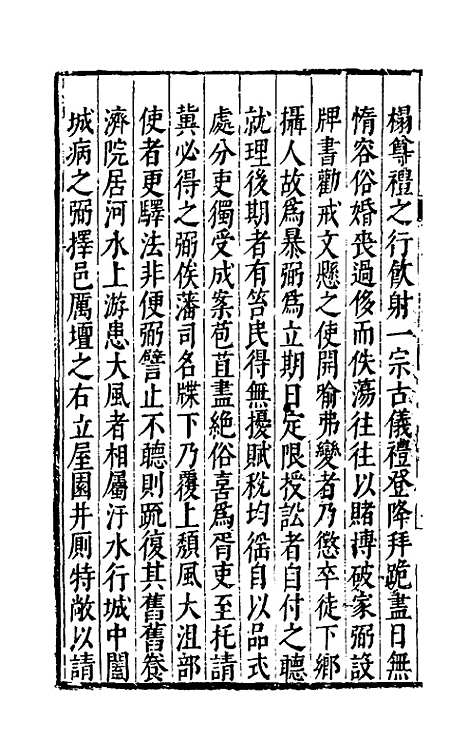 榻尊禮之行飲射一宗古儀禮登降拜跪盡日無
惰容俗婚喪過侈而佚蕩往往以賭博破家弼設
牌書勸戒文懸之使開喻弗變者乃懲卒徒下鄉
攝人故爲暴弼爲立期日定限授訟者自付之聽
就理後期者有笞民得無擾賦稅均徭自以品式
處分吏獨受成案苞苴盡絕俗喜爲胥吏至托請
冀必得之弼俟藩司名牒下乃覆上頹風大沮部
使者更驛法非便弼譬止不聽則䟽復其舊舊養
濟院居河水上游患大風者相屬汙水行城中闔
城病之弼擇邑厲壇之右立屋園井厠特敞以請